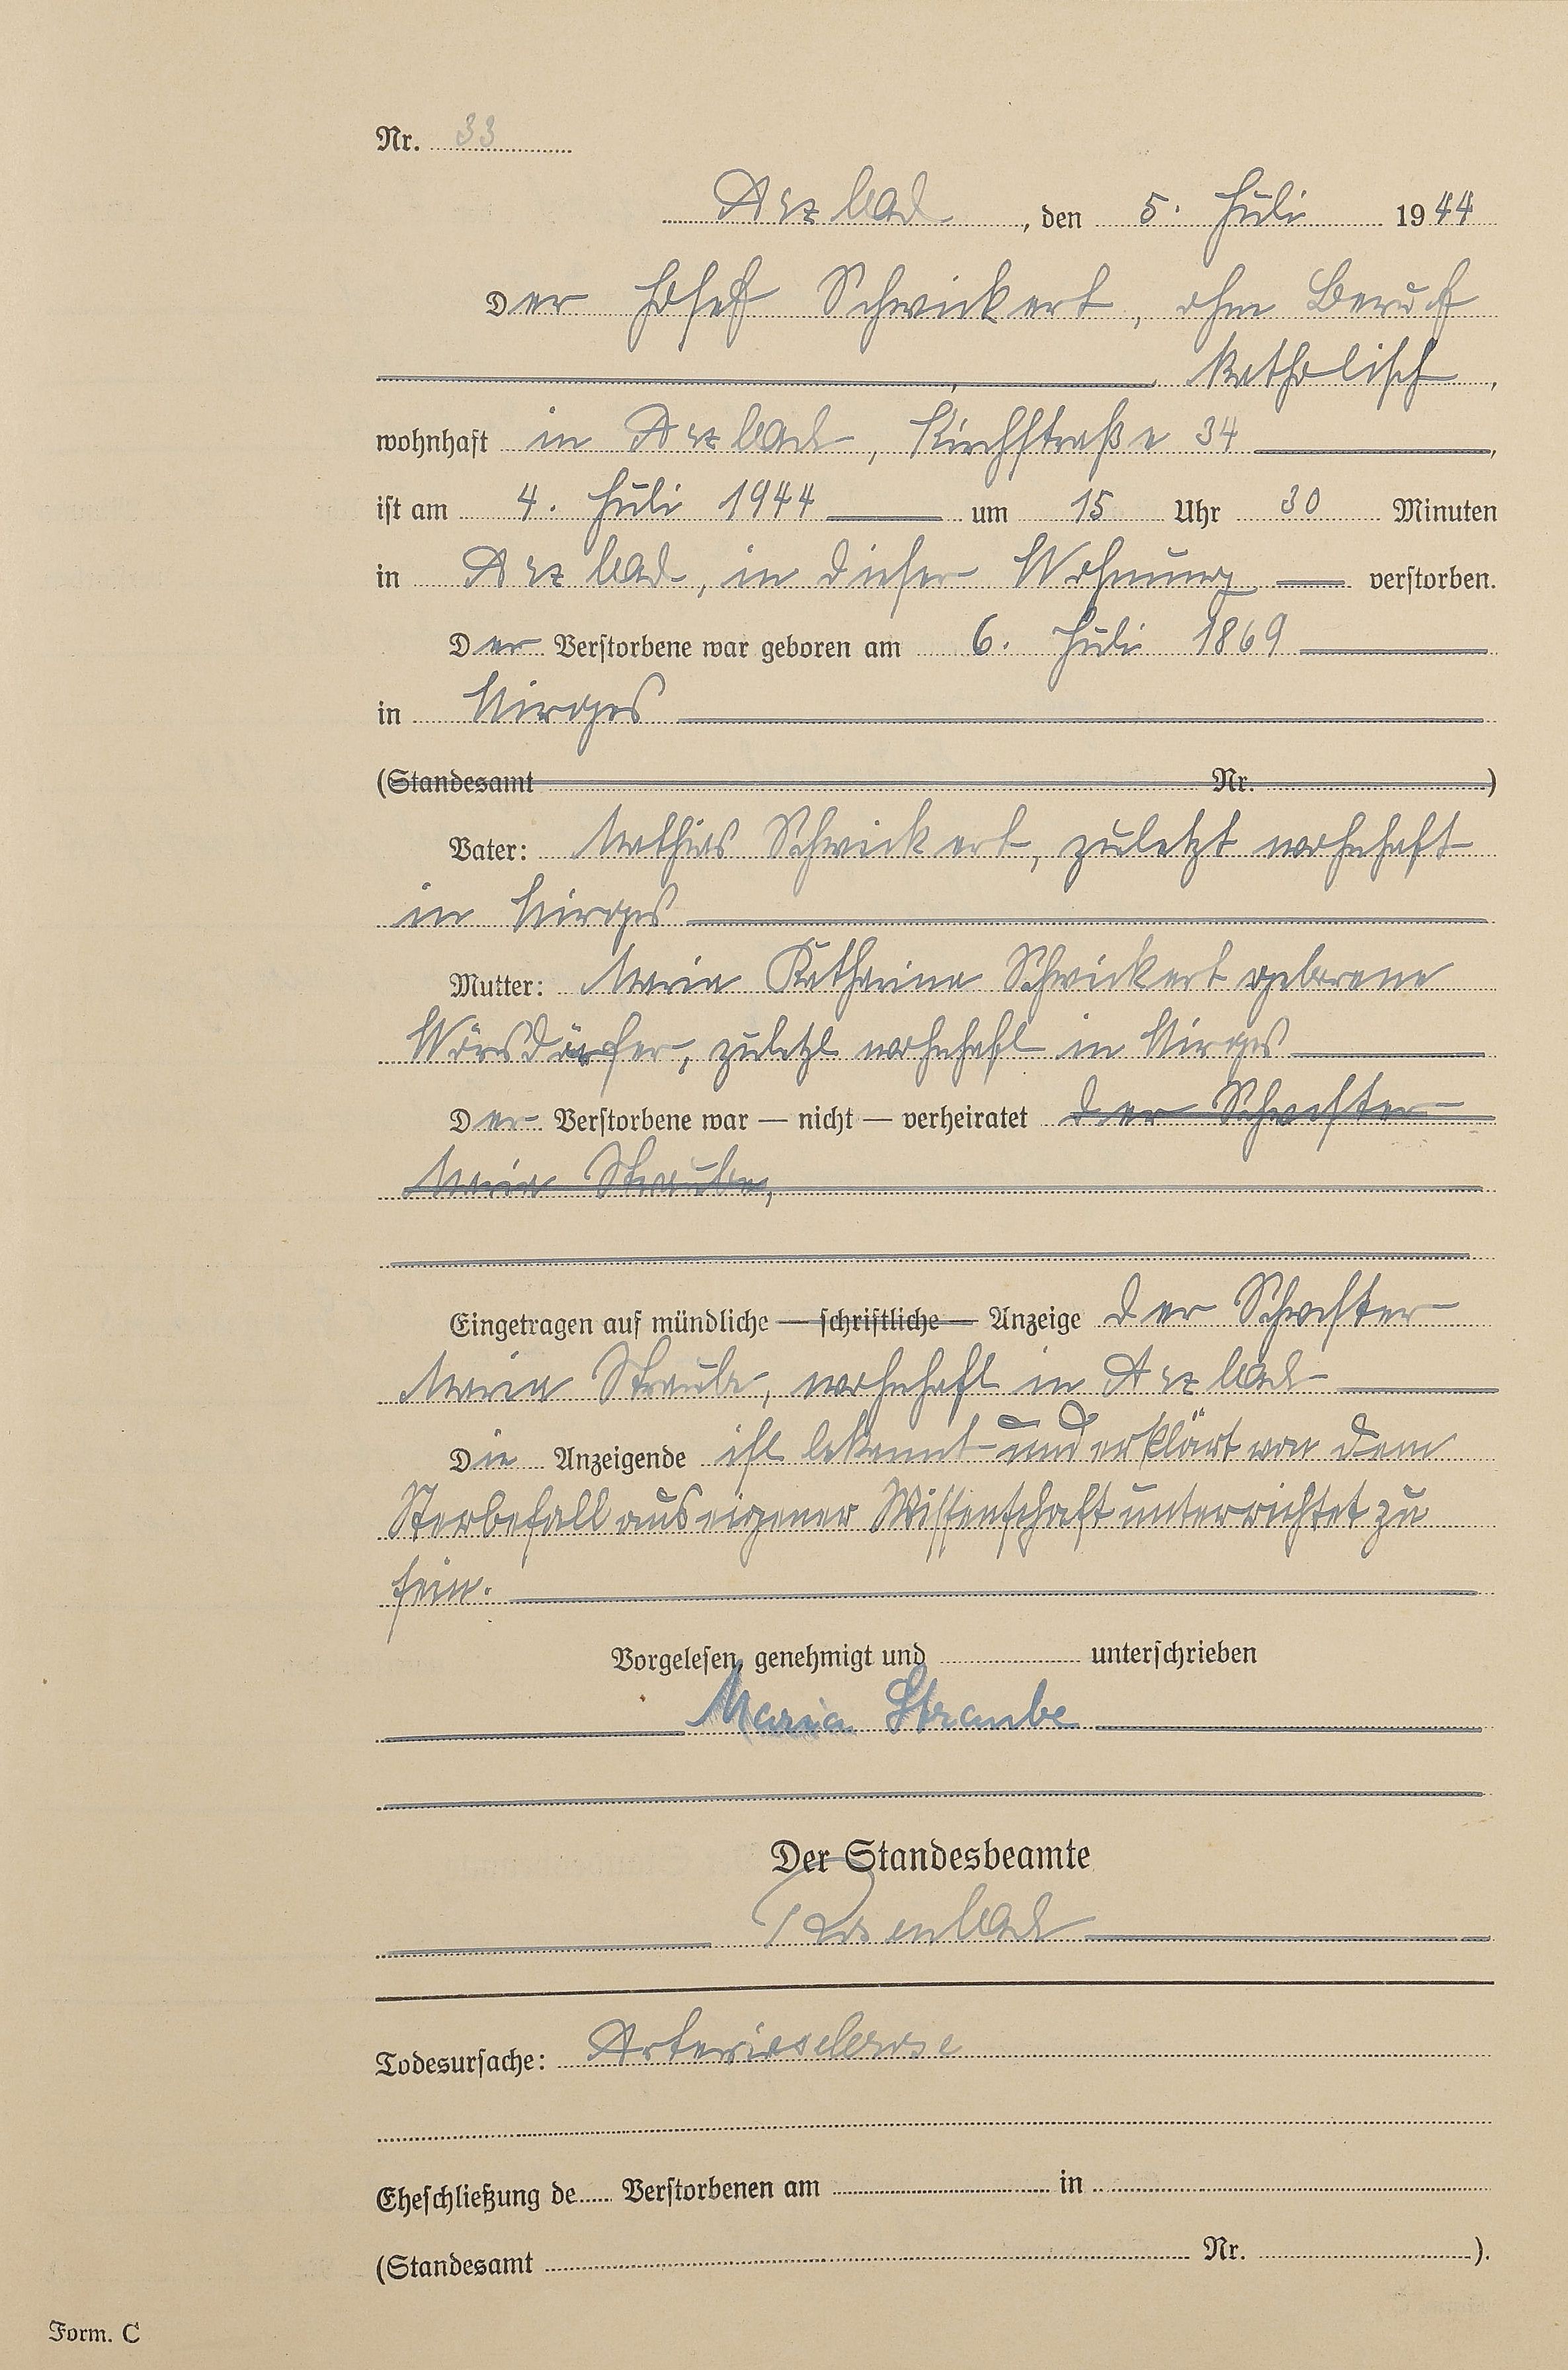 Nr. 33
Arzbach, den 5. Juli 1944
Der Josef Schwickert, ohne Beruf
katholisch,
wohnhaft in Arzbach, Kirchstraße 34,
ist am 4. Juli 1944 um 15 Uhr 30 Minuten
in Arzbach, in dieser Wohnung verstorben.
Der Verstorbene war geboren am 6. Juli 1869
in Wirges
(Standesamt Nr. )
Vater: Mathias Schwickert, zuletzt wohnhaft
in Wirges
Mutter: Maria Katharina Schwickert geborene
Wörsdörfer, zuletzt wohnhaft in Wirges
Der Verstorbene war — nicht — verheiratet der Schwester
Maria Straube,
Eingetragen auf mündliche — schriftliche — Anzeige der Schwester
Maria Straube, wohnhaft in Arzbach
Die Anzeigende ist bekannt und erklärt von dem
Sterbefall aus eigener Wissenschaft unterrichtet zu
sein.
Vorgelesen, genehmigt und unterschrieben
Maria Straube
Der Standesbeamte
Todesursache: Arteriosclerose
Eheschließung de Verstorbenen am in
(Standesamt Nr. ).
Form. C